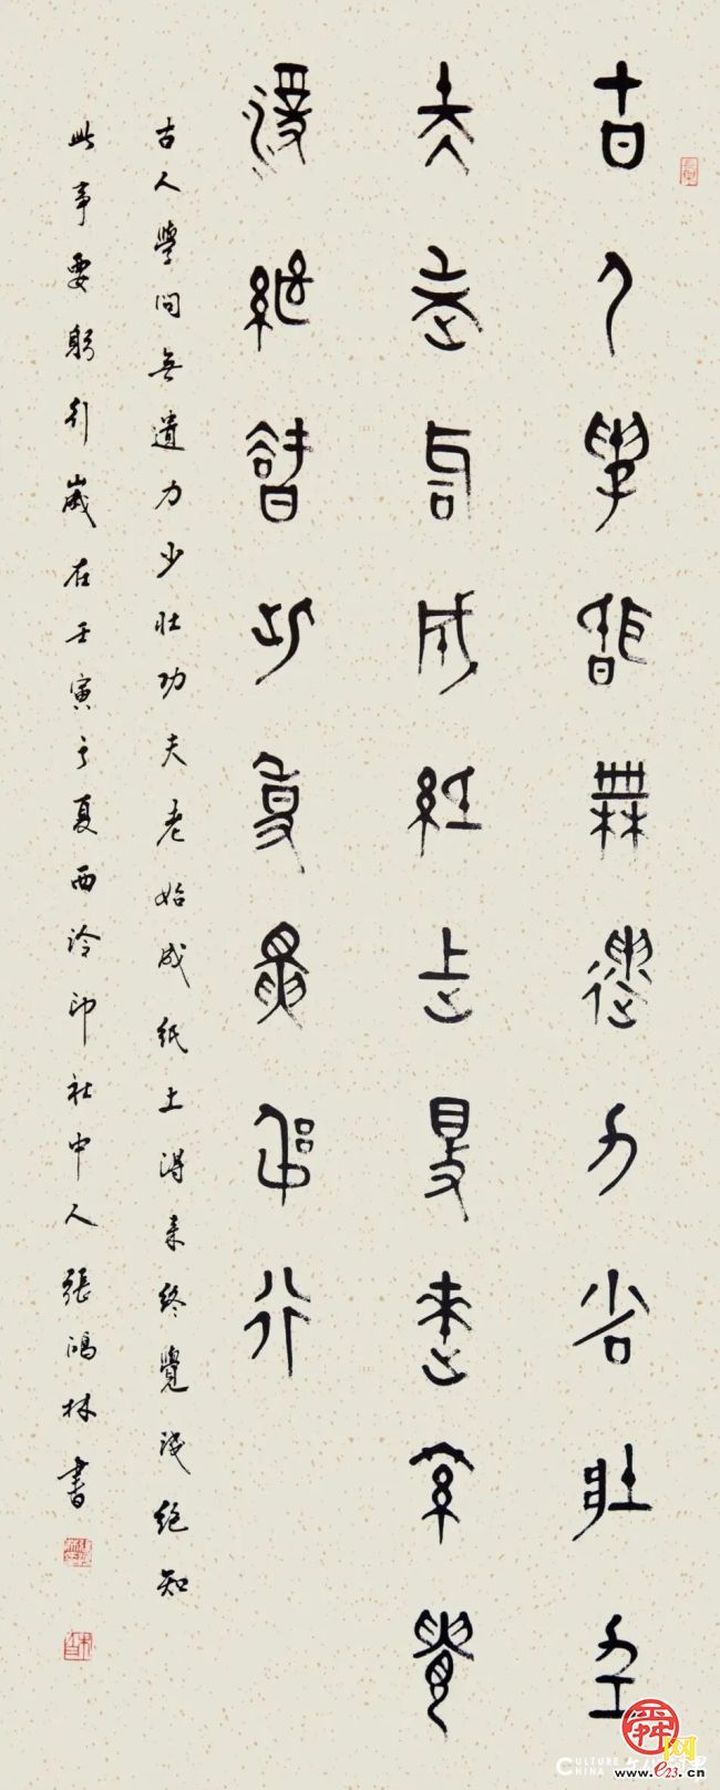 古人學問無遺力少壯功
夫老始成紙上得來終覺
淺絕知此事要躬行
古人學問無遺力少壯功夫老始成紙上得来終覺淺絕知
此事要躬行歲在壬寅之夏西泠印社中人張鴻林書
舜网
www.e23.cn
CULTURE
CHINA